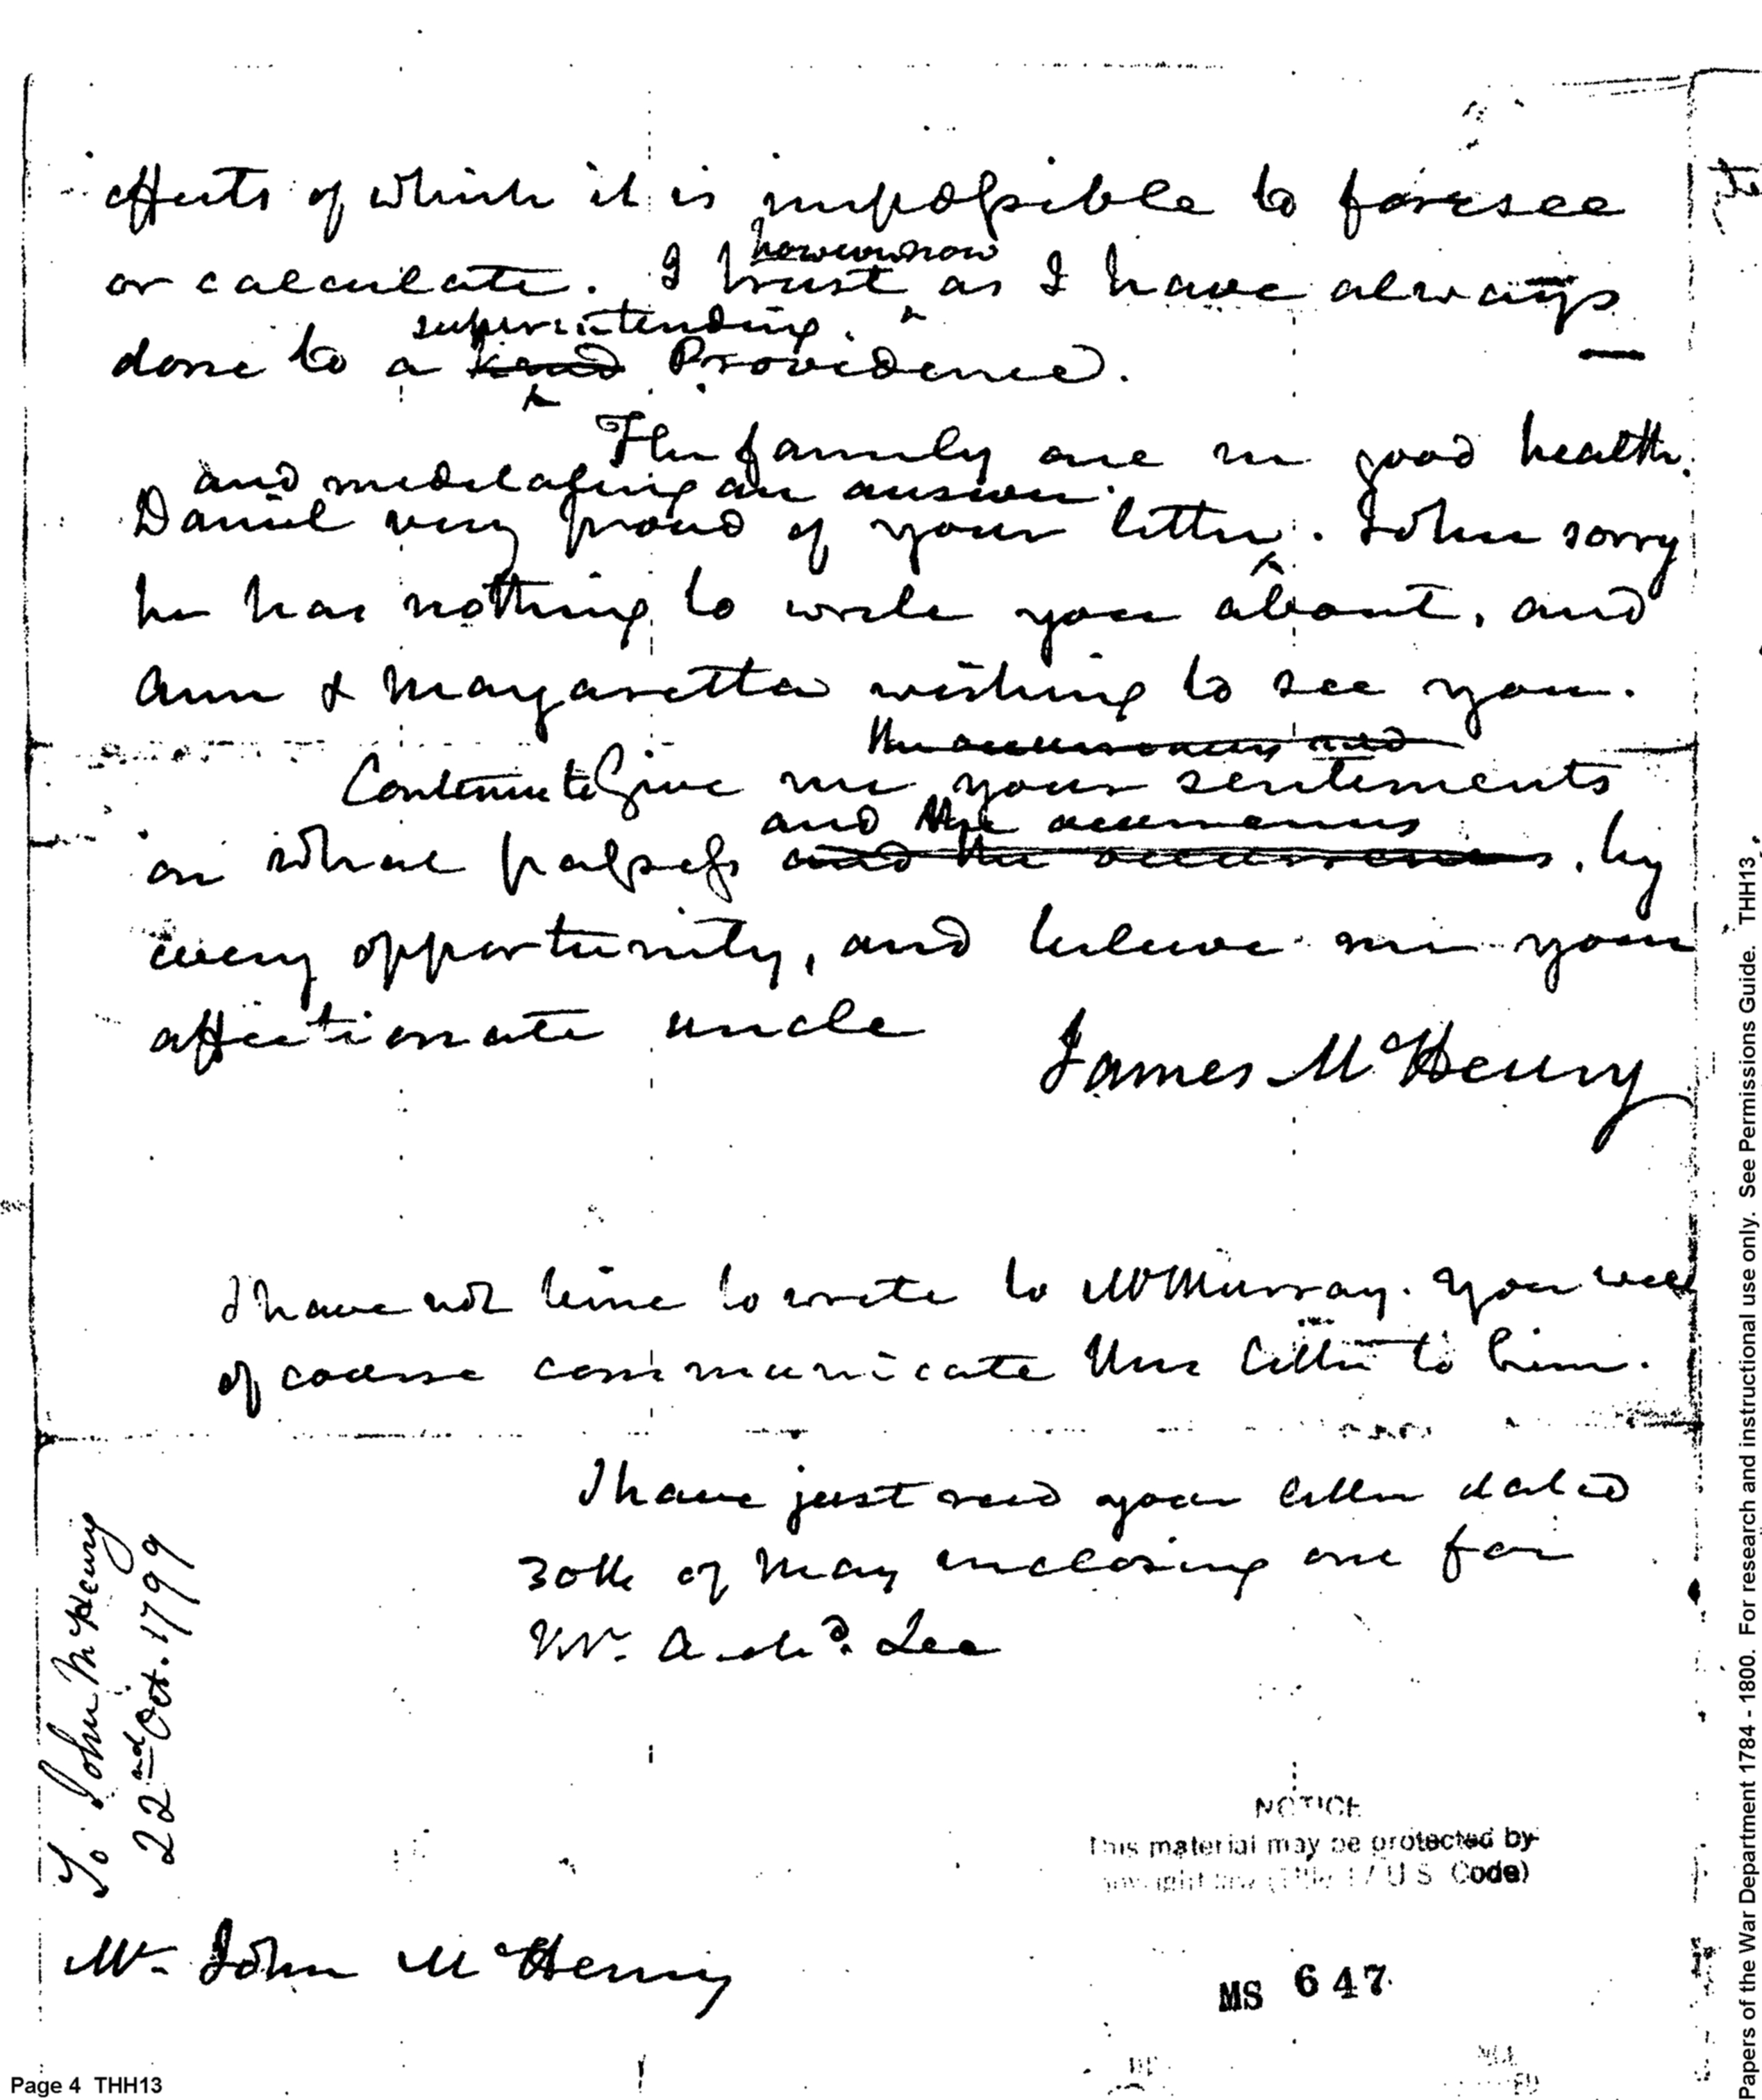 effects of which it is impossible to foresee
however now
or calculate. I trust as I have always
superintending
done to a kind Providence.
The family are in good health.
and meditating an answer.
Daniel very proud of your letter. John sorry
he has nothing to write you about, and
Ann & Margaretta wishing to see you.
the occurrences and
Continue to Give me your sentiments
and the occurrences
on what passes and the occurrences, by
every opportunity, and believe me your
affectionate uncle
James McHenry
I have not time to write to Mr Murray. You will
of course communicate this letter to him.
I have just recd your letter dated
30th of May inclosing one for
Mr. Lee
To John McHenry
22nd Oct. 1799
NOTICE
This material may be protected by
copyright law (Title 17 U S Code)
Mr. John McHenry
MS 647
Page 4 THH13
Papers of the War Department 1784 - 1800. For research and instructional use only. See Permissions Guide. THH13